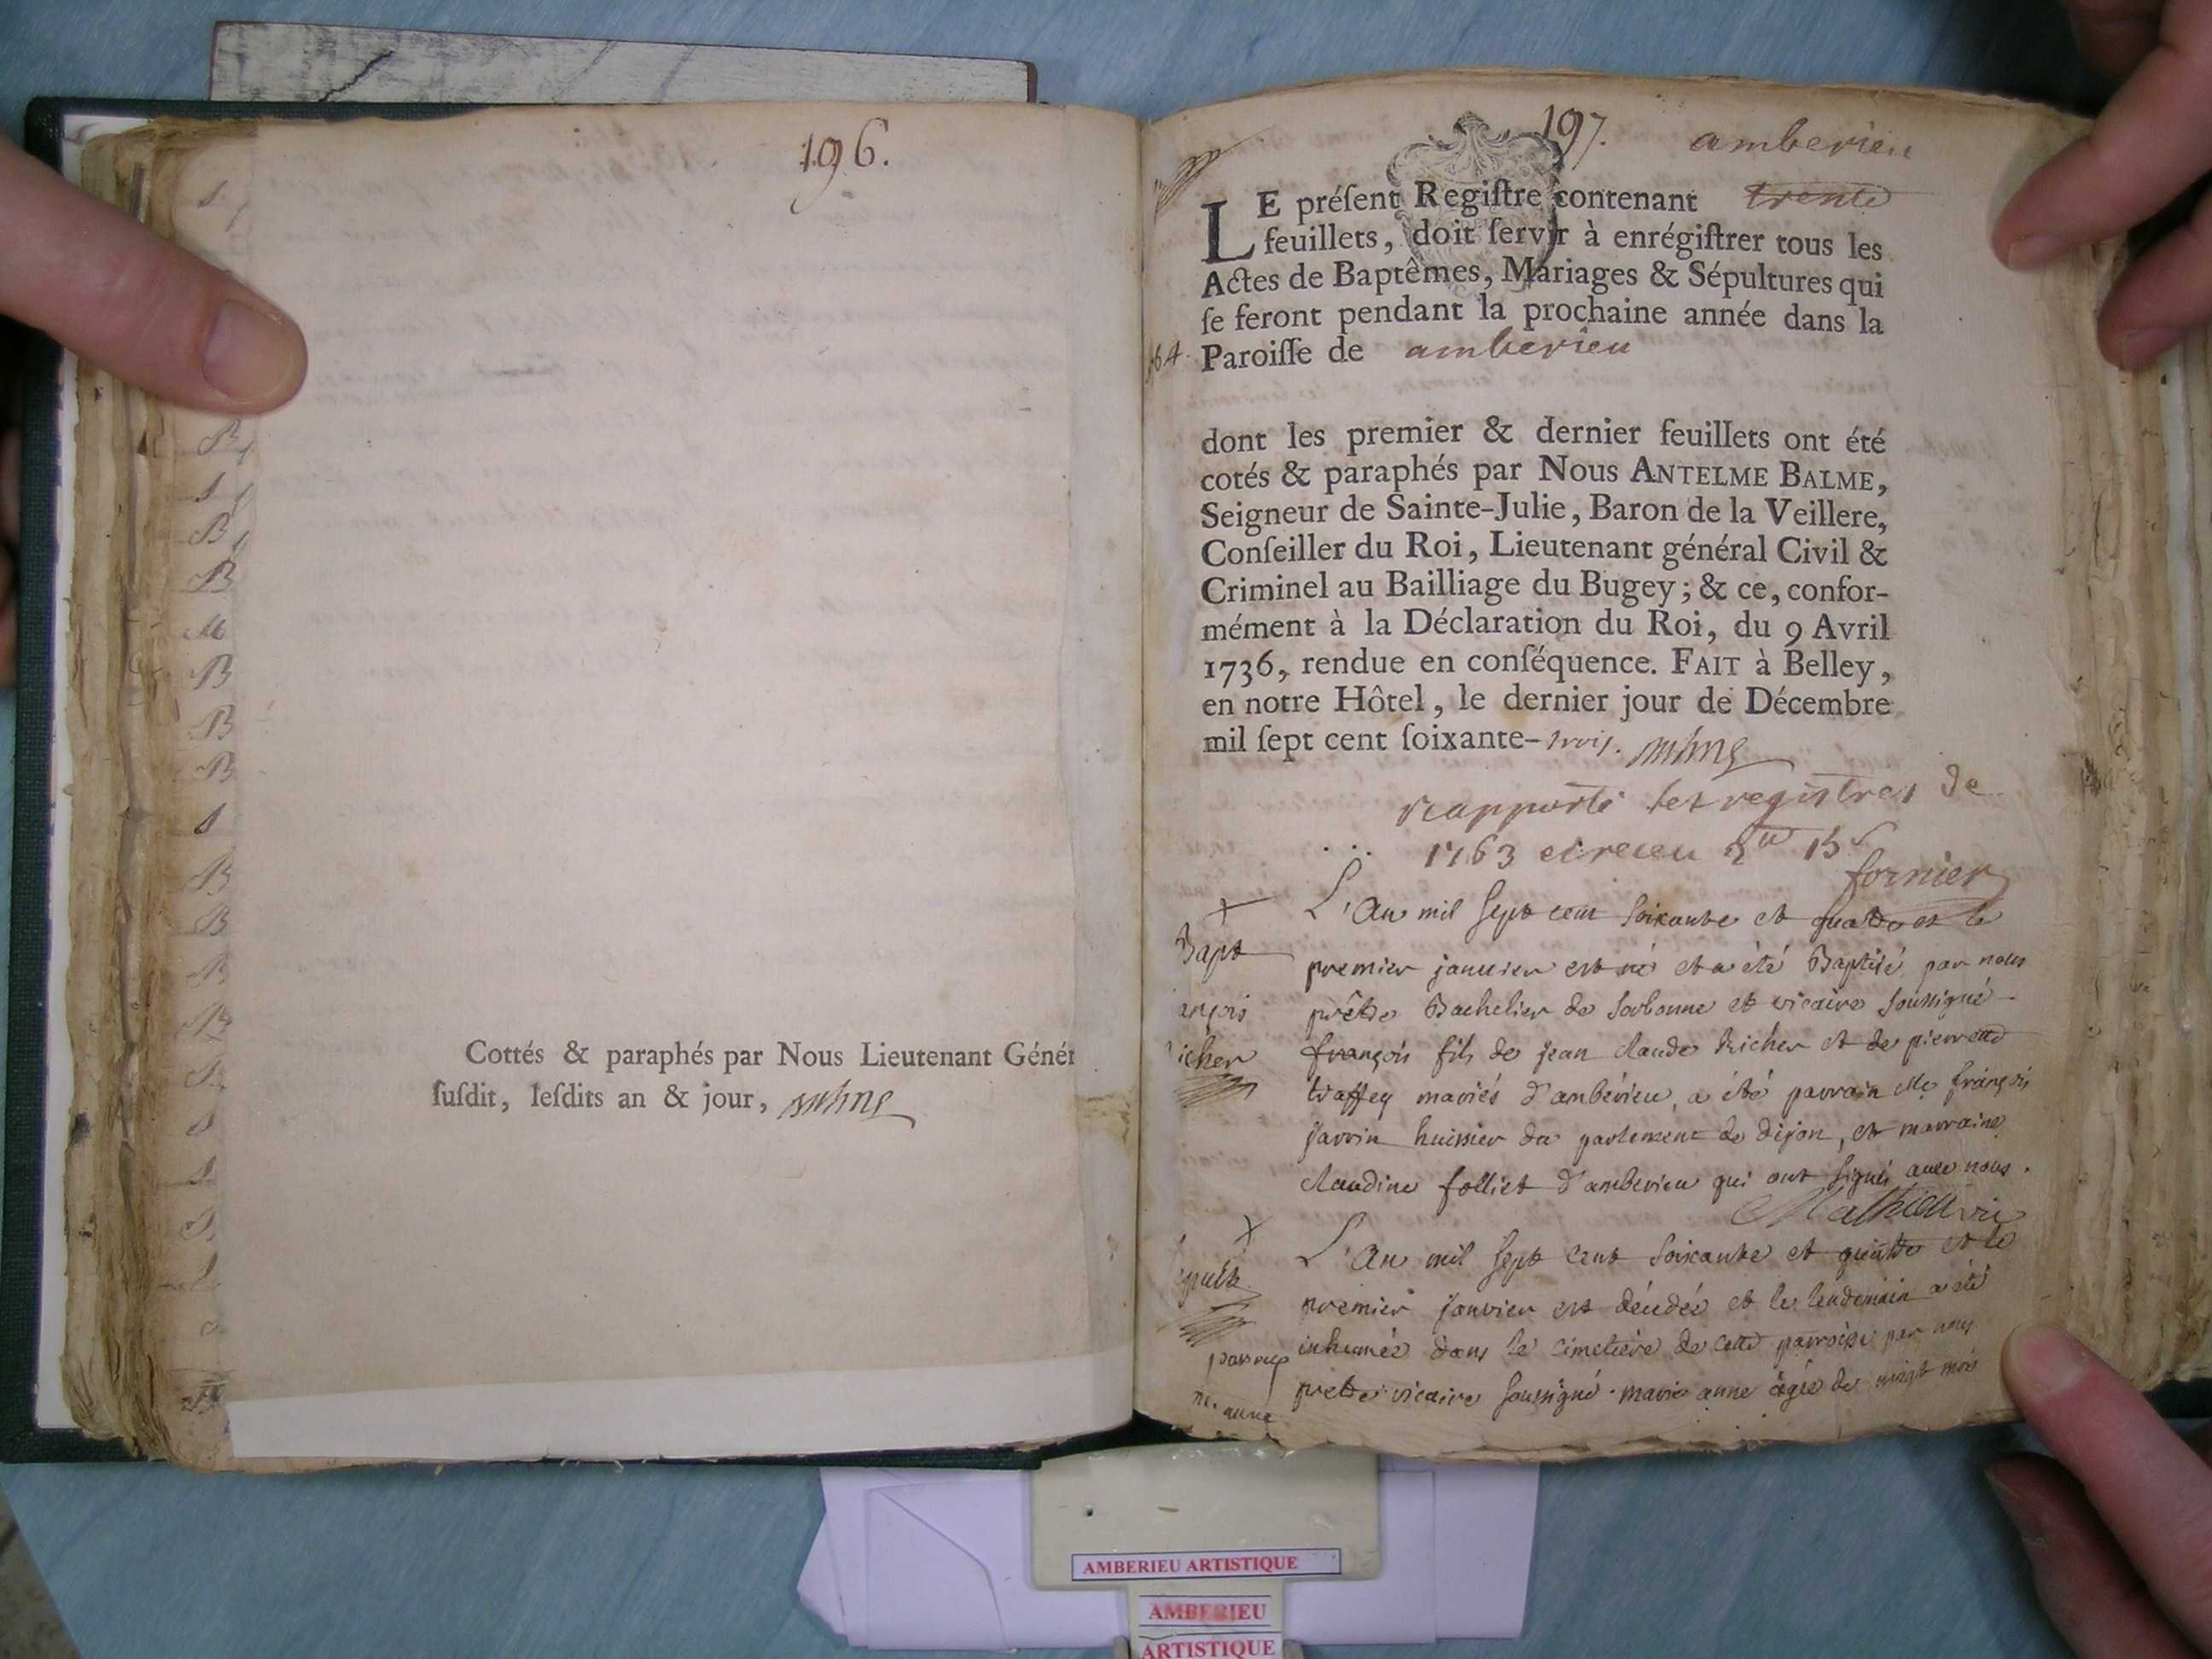 196.
Cottés & paraphés par Nous Lieutenant Génér
ſuſdit, leſdits an & jour,
197. amberieu
LE préſent Regiſtre contenant trente
feuillets, doit ſervir à enrégiſtrer tous les
Actes de Baptêmes, Mariages & Sépultures qui
ſe feront pendant la prochaine année dans la
Paroiſſe de amberieu
dont les premier & dernier feuillets ont été
cotés & paraphés par Nous ANTELME BALME,
Seigneur de Sainte-Julie, Baron de la Veillere,
Conſeiller du Roi, Lieutenant général Civil &
Criminel au Bailliage du Bugey; & ce, confor-
mément à la Déclaration du Roi, du 9 Avril
1736, rendue en conſéquence. FAIT à Belley,
en notre Hôtel, le dernier jour de Décembre
mil ſept cent ſoixante-trois.
rapporté les registres de
1763 et receu
fornier
Bapt
ançois
icher
L'An mil sept cent soixante et quatre et le
premier janvier est né et a été Baptisé par nous
prêtre Bachelier de sorbonne et vicaire soussigné
françois fils de jean claude Richer et de pierrette
traffey mariés d'ambérieu, a été parrain Me françois
jarrin huissier du parlement de dijon, et marraine
claudine folliet d'amberieu qui ont signé avec nous.
Mathieu vic
L'An mil sept cent soixante et quatre et le
premier janvier est décédée et le lendemain a été
inhumée dans le cimetière de cette parroisse par nous
prêtre vicaire soussigné marie anne âgée de vingt mois
m. anne
AMBERIEU ARTISTIQUE
AMBERIEU
ARTISTIQUE